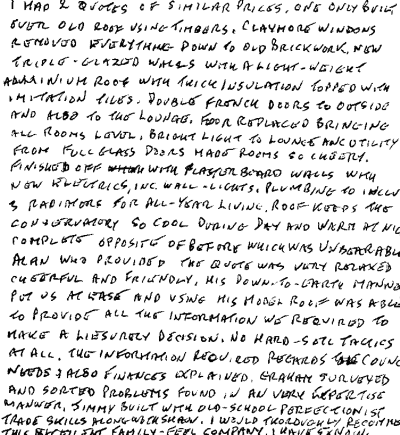 I HAD 2 QUOTES OF SIMILAR PRICES. ONE ONLY BUILT
OVER OLD ROOF USING TIMBERS. CLAYMORE WINDOWS
REMOVED EVERYTHING DOWN TO OLD BRICKWORK. NEW
TRIPLE-GLAZED WALLS WITH A LIGHT-WEIGHT
ALUMINIUM ROOF WITH THICK INSULATION TOPPED WITH
IMITATION TILES. DOUBLE FRENCH DOORS TO OUTSIDE
AND ALSO TO THE LOUNGE. FLOOR REPLACED BRINGING
ALL ROOMS LEVEL. BRIGHT LIGHT TO LOUNGE AND UTILITY
FROM FULL GLASS DOORS MADE ROOMS SO CHEERY.
FINISHED OFF WITH PLASTERBOARD WALLS WITH
NEW ELECTRICS, INC. WALL-LIGHTS. PLUMBING TO INCLU
3 RADIATORS FOR ALL-YEAR LIVING. ROOF KEEPS THE
CONSERVATORY SO COOL DURING DAY AND WARM AT NIG
COMPLETE OPPOSITE OF BEFORE WHICH WAS UNBEARABL
ALAN WHO PROVIDED THE QUOTE WAS VERY RELAXED
CHEERFUL AND FRIENDLY. HIS DOWN-TO-EARTH MANNE
PUT US AT EASE AND USING HIS MODEL ROOF WAS ABL
TO PROVIDE ALL THE INFORMATION WE REQUIRED TO
MAKE A LIESURELY DECISION. NO HARD-SELL TACTICS
AT ALL. THE INFORMATION REQUIRED REGARDS COUNC
NEEDS & ALSO FINANCES EXPLAINED. GRAHAM SURVEYED
AND SORTED PROBLEMS FOUND IN AN VERY EXPERTISE
MANNER. JIMMY BUILT WITH OLD-SCHOOL PERFECTIONIST
TRADE SKILLS ALONG WITH SHAWN. I WOULD THOROUGHLY RECOMME
THIS EXCELLENT FAMILY-FEEL COMPANY. I HAVE